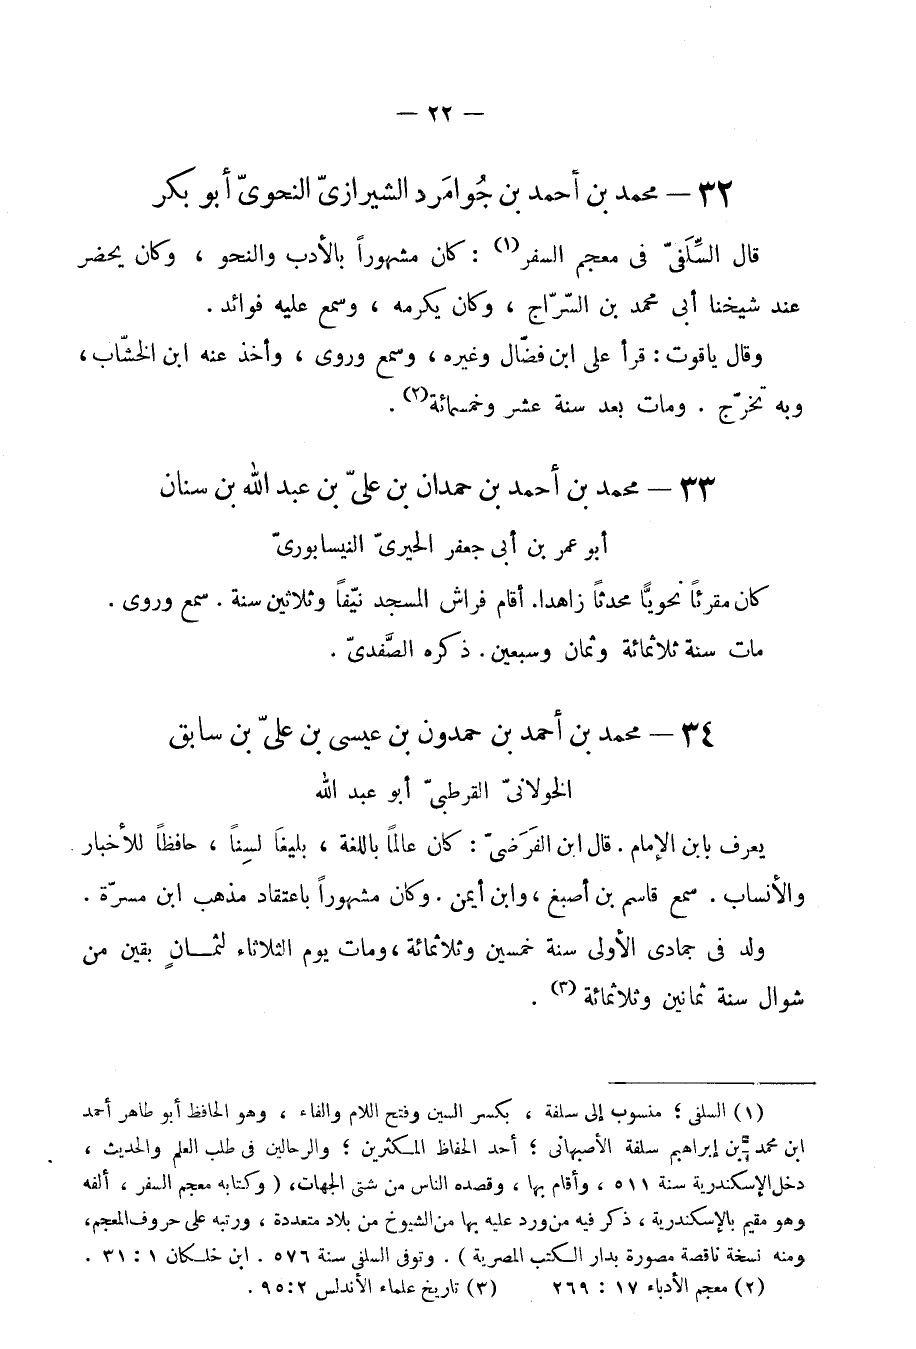 — ٢٢ —
٣٢ — محمد بن أحمد بن جُوامَرد الشيرازىّ النحوىّ أبو بكر
قال السِّلَفىّ فى معجم السفر(١) : كان مشهوراً بالأدب والنحو ، وكان يحضر
عند شيخنا أبى محمد بن السّرّاج ، وكان يكرمه ، وسمع عليه فوائد .
وقال ياقوت : قرأ على ابن فضّال وغيره ، وسمع وروى ، وأخذ عنه ابن الخشّاب ،
وبه تخرّج . ومات بعد سنة عشر وخمسمائة(٢) .
٣٣ — محمد بن أحمد بن حمدان بن علىّ بن عبد الله بن سنان
أبو عمر بن أبى جعفر الحيرىّ النيسابورىّ
كان مقرئاً نحويًّا محدثاً زاهدا. أقام فراش المسجد نيّفاً وثلاثين سنة . سمع وروى .
مات سنة ثلاثمائة وثمان وسبعين . ذكره الصَّفدىّ .
٣٤ — محمد بن أحمد بن حمدون بن عيسى بن علىّ بن سابق
الخولانىّ القرطبىّ أبو عبد الله
يعرف بابن الإمام . قال ابن الفَرَضىّ : كان عالماً باللغة ، بليغاً لسِناً ، حافظاً للأخبار
والأنساب . سمع قاسم بن أصبغ ، وابن أيمن . وكان مشهوراً باعتقاد مذهب ابن مسرّة .
ولد فى جمادى الأولى سنة خمسين وثلاثمائة ، ومات يوم الثلاثاء لثمـــانٍ بقين من
شوال سنة ثمانين وثلاثمائة (٣) .
(١) السلفى ؛ منسوب إلى سلفة ، بكسر السين وفتح اللام والفاء ، وهو الحافظ أبو طاهر أحمد
ابن محمد بن إبراهيم سلفة الأصبهانى ؛ أحد الحفاظ المكثرين ؛ والرحالين فى طلب العلم والحديث ،
دخل الإسكندرية سنة ٥١١ ، وأقام بها ، وقصده الناس من شتى الجهات ، ( وكتابه معجم السفر ، ألفه
وهو مقيم بالإسكندرية ، ذكر فيه من ورد عليه بها من الشيوخ من بلاد متعددة ، ورتبه على حروف المعجم،
ومنه نسخة ناقصة مصورة بدار الكتب المصرية ) . وتوفى السلفى سنة ٥٧٦ . ابن خلكان ١ : ٣١ .
(٢) معجم الأدباء ١٧ : ٢٦٩ (٣) تاريخ علماء الأندلس ٢ : ٩٥ .